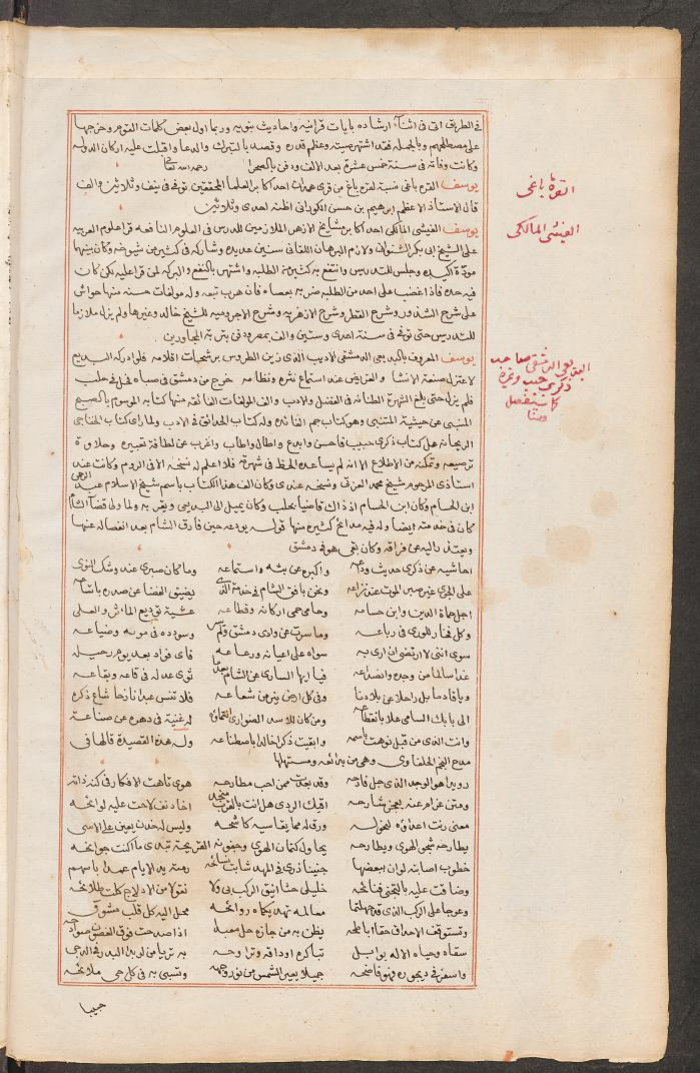 في الطريق اتى فى اثنآء ارشاده بايات قرانيه واحاديث نبويه وربما اول بعض كلمات القوم وخرجها
على مصطلحهم وبالجمله فقد اشتهر صيته وعظم قدره وقصد بالتبرك والدعا واقبلت عليه اركان الدوله
وكانت وفاته فى سنة خمس عشرة بعد الالف ودفن بالصحرا رحمه الله تعالى
يوسف القره باغى نسبة لقره باغ من قرى همدان احد اكابر العلما المحققين توفى فى نيف وثلاثين والف
قال الاستاذ الاعظم ابرهيم بن حسن الكورانى اظنه احدى وثلاثين
القره باغى
يوسف الفيشى المالكى احد اكابر مشايخ الازهر الملازمين للدرس فى العلوم النافعه قرا علوم العربيه
الفيشى المالكى
على الشيخ ابى بكر الشنوانى ولازم البرهان اللقانى سنين عديده وشاركه فى كثير من شيوخه وكان بينهما
مودة اكيده وجلس للتدريس وانتفع به كثير من الطلبه واشتهر بالنفع والبركه لمن قرا عليه لكن كان
فيه حده فاذا غضب على احد من الطلبه ضربه بعصاه فان هرب تبعه وله مولفات حسنه منها حواش
على شرح الشذور وشرح القطر وشرح الازهريه وشرح الاجروميه للشيخ خالد وغيرها ولم يزل ملازما
للتدريس حتى توفى فى سنة احدى وستين والف بمصر ودفن بتربة المجاورين
يوسف المعروف بالبديعى الدمشقى الاديب الذى زين الطروس برشحات اقلامه فلو ادركه البديع
البديعى الدمشقى صاحب
ذكرى حبيب وغيره
لاعتزل صنعة الانشا والقريض عند استماع نثره ونظامه خرج من دمشق فى صباه فحل فى حلب
فلم يزل حتى بلغ الشهرة الطنانه فى الفضل والادب والف المولفات الفائقه منها كتابه الموسوم بالصبح
المنبى عن حيثية المتنبى وهو كتاب جم الفائده وله كتاب الحدائق فى الادب ولما راى كتاب الخفاجى
الريحانه عمل كتاب ذكرى حبيب فاحسن وابدع واطال واطاب واغرب عن لطافة تعبيره وحلاوة
ترصيعه وتمكنه من الاطلاع الا انه لم يساعده الحظ فى شهرته فلا اعلم له نسخه الا فى الروم وكانت عند
استاذى المرحوم شيخ محمد العزتى ونسخه عندى وكان الف هذا الكتاب باسم شيخ الاسلام عبد الرحمن
ابن الحسام وكان ابن الحسام اذ ذاك قاضيا بحلب وكان يميل الى البديعى ويقربه ولما ولى قضآ الشام
كان فى خدمته ايضا وله فيه مدائح كثيره منها قوله يودعه حين فارق الشام بعد انفصاله عنها
ويعتذر اليه عن فراقه وكان بقى هو فى دمشق
احاشيه عن ذكرى حديث وداعه واكبره عن بثه واستماعه وما كان صبرى عند وشك النوى
على الجرى غير صبر الموت عند نزاعه ونحن بافق الشام فى خدمة الذى يضيق الفضا عن صدره باتساعه
اجل حماة الدين وابن حسامه وحامى حمى اركانه وقطاعه عشية توديع الماثر والعلى
وكل فخار للورى فى رباعه وما سرت عن وادى دمشق ولم وسودده فى مربه وضياعه
سوى اننى لا ارتضى ان ارى به سواه على اعيانه ورعاعه فاى فؤاد بعد يوم رحيله
غدا سالما من وجده وانصداعه فيا ايها السارى عن الشام بعدما ثوى عدله فى قاعه وبقاعه
ويا قادما بل راحلا عن بلادنا وفى كل ارض ينر من شعاعه فلا تنس عبدا نازحا شاع ذكره
الى بابك السامى علا بانقطاعه ومن كان للاسد الضوارى له غنية فى دهره عن صناعة
وانت الذى من قبل نوهت باسمه وابقيت ذكرا خالدا باصطناعه وله هذه القصيدة قالها فى
مدح النجم الحلفاوى وهى من بدائعه ومستهلها
رويدا هو الوجد الذى جل فادحه وقد بعدت ممن احب مطارحه هوى تاهت الافكار فى كنه ذاته
ومتن غرام عنه يعجز شارحه افاد نف لاحت عليه لوائحه
معنى رنت اعداؤه لنحوله ورق له مما يقاسيه كاشحه وليس له خدن يعين على الاسى
يطارحه شجو الهوى ويطارحه يحاول كتمان الهوى وجفونه القريحة تبدى ما اكنت جوانحه
خطوب اصابته لو ان ببعضها جنينا ذرى فى المهد شابت مسائحه رمته يد الايام عمدا باسهم
وضاقت عليه بالتجنى فنائحه
وعوجا على الركب الذى قد جهلتما معالمه تهديكما روائحه محل اليه كل قلب مشوق
وتستوقف الاحداق حقا اباطحه يظن به من جازه حل معبدا اذا صدحت فوق الغصون صوادحه
سقاه وحياه الاله بوابل تباكره انداقه وتراوحه
واسفر فى ديجوره فهو فاضحه جميلا يعير الشمس من نور وجهه ويسبى به فى كل حى ملائحه
حبيبا